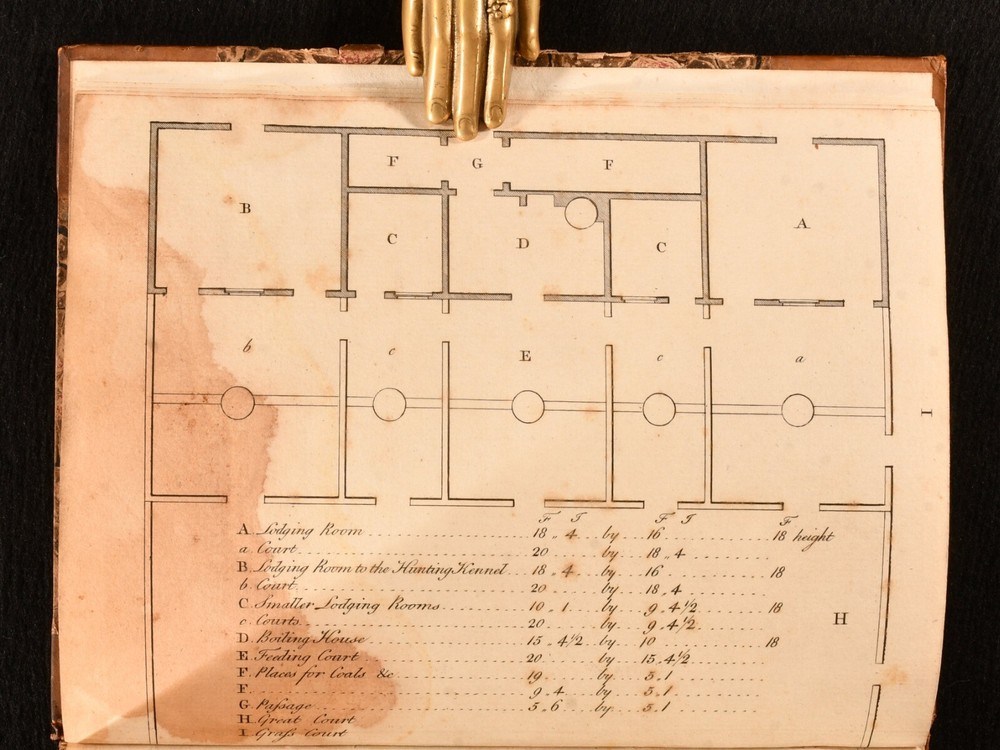 F G F
B A
C D C
b c E c a
I
F I F I F
A Lodging Room 18 .. 4 by 16 18 height
a Court 20 by 18 .. 4
B Lodging Room to the Hunting Kennel 18 .. 4 by 16 18
b Court 20 by 18 .. 4
C Smaller Lodging Rooms 10 .. 1 by 9 .. 4 1/2 18
c Courts 20 by 9 .. 4 1/2
H
D Boiling House 15 .. 4 1/2 by 10 18
E Feeding Court 20 by 15 .. 4 1/2
F Places for Coals &c 19 by 5 .. 1
F 9 .. 4 by 5 .. 1
G Paſsage 5 .. 6 by 5 .. 1
H Great Court
I Graſs Court